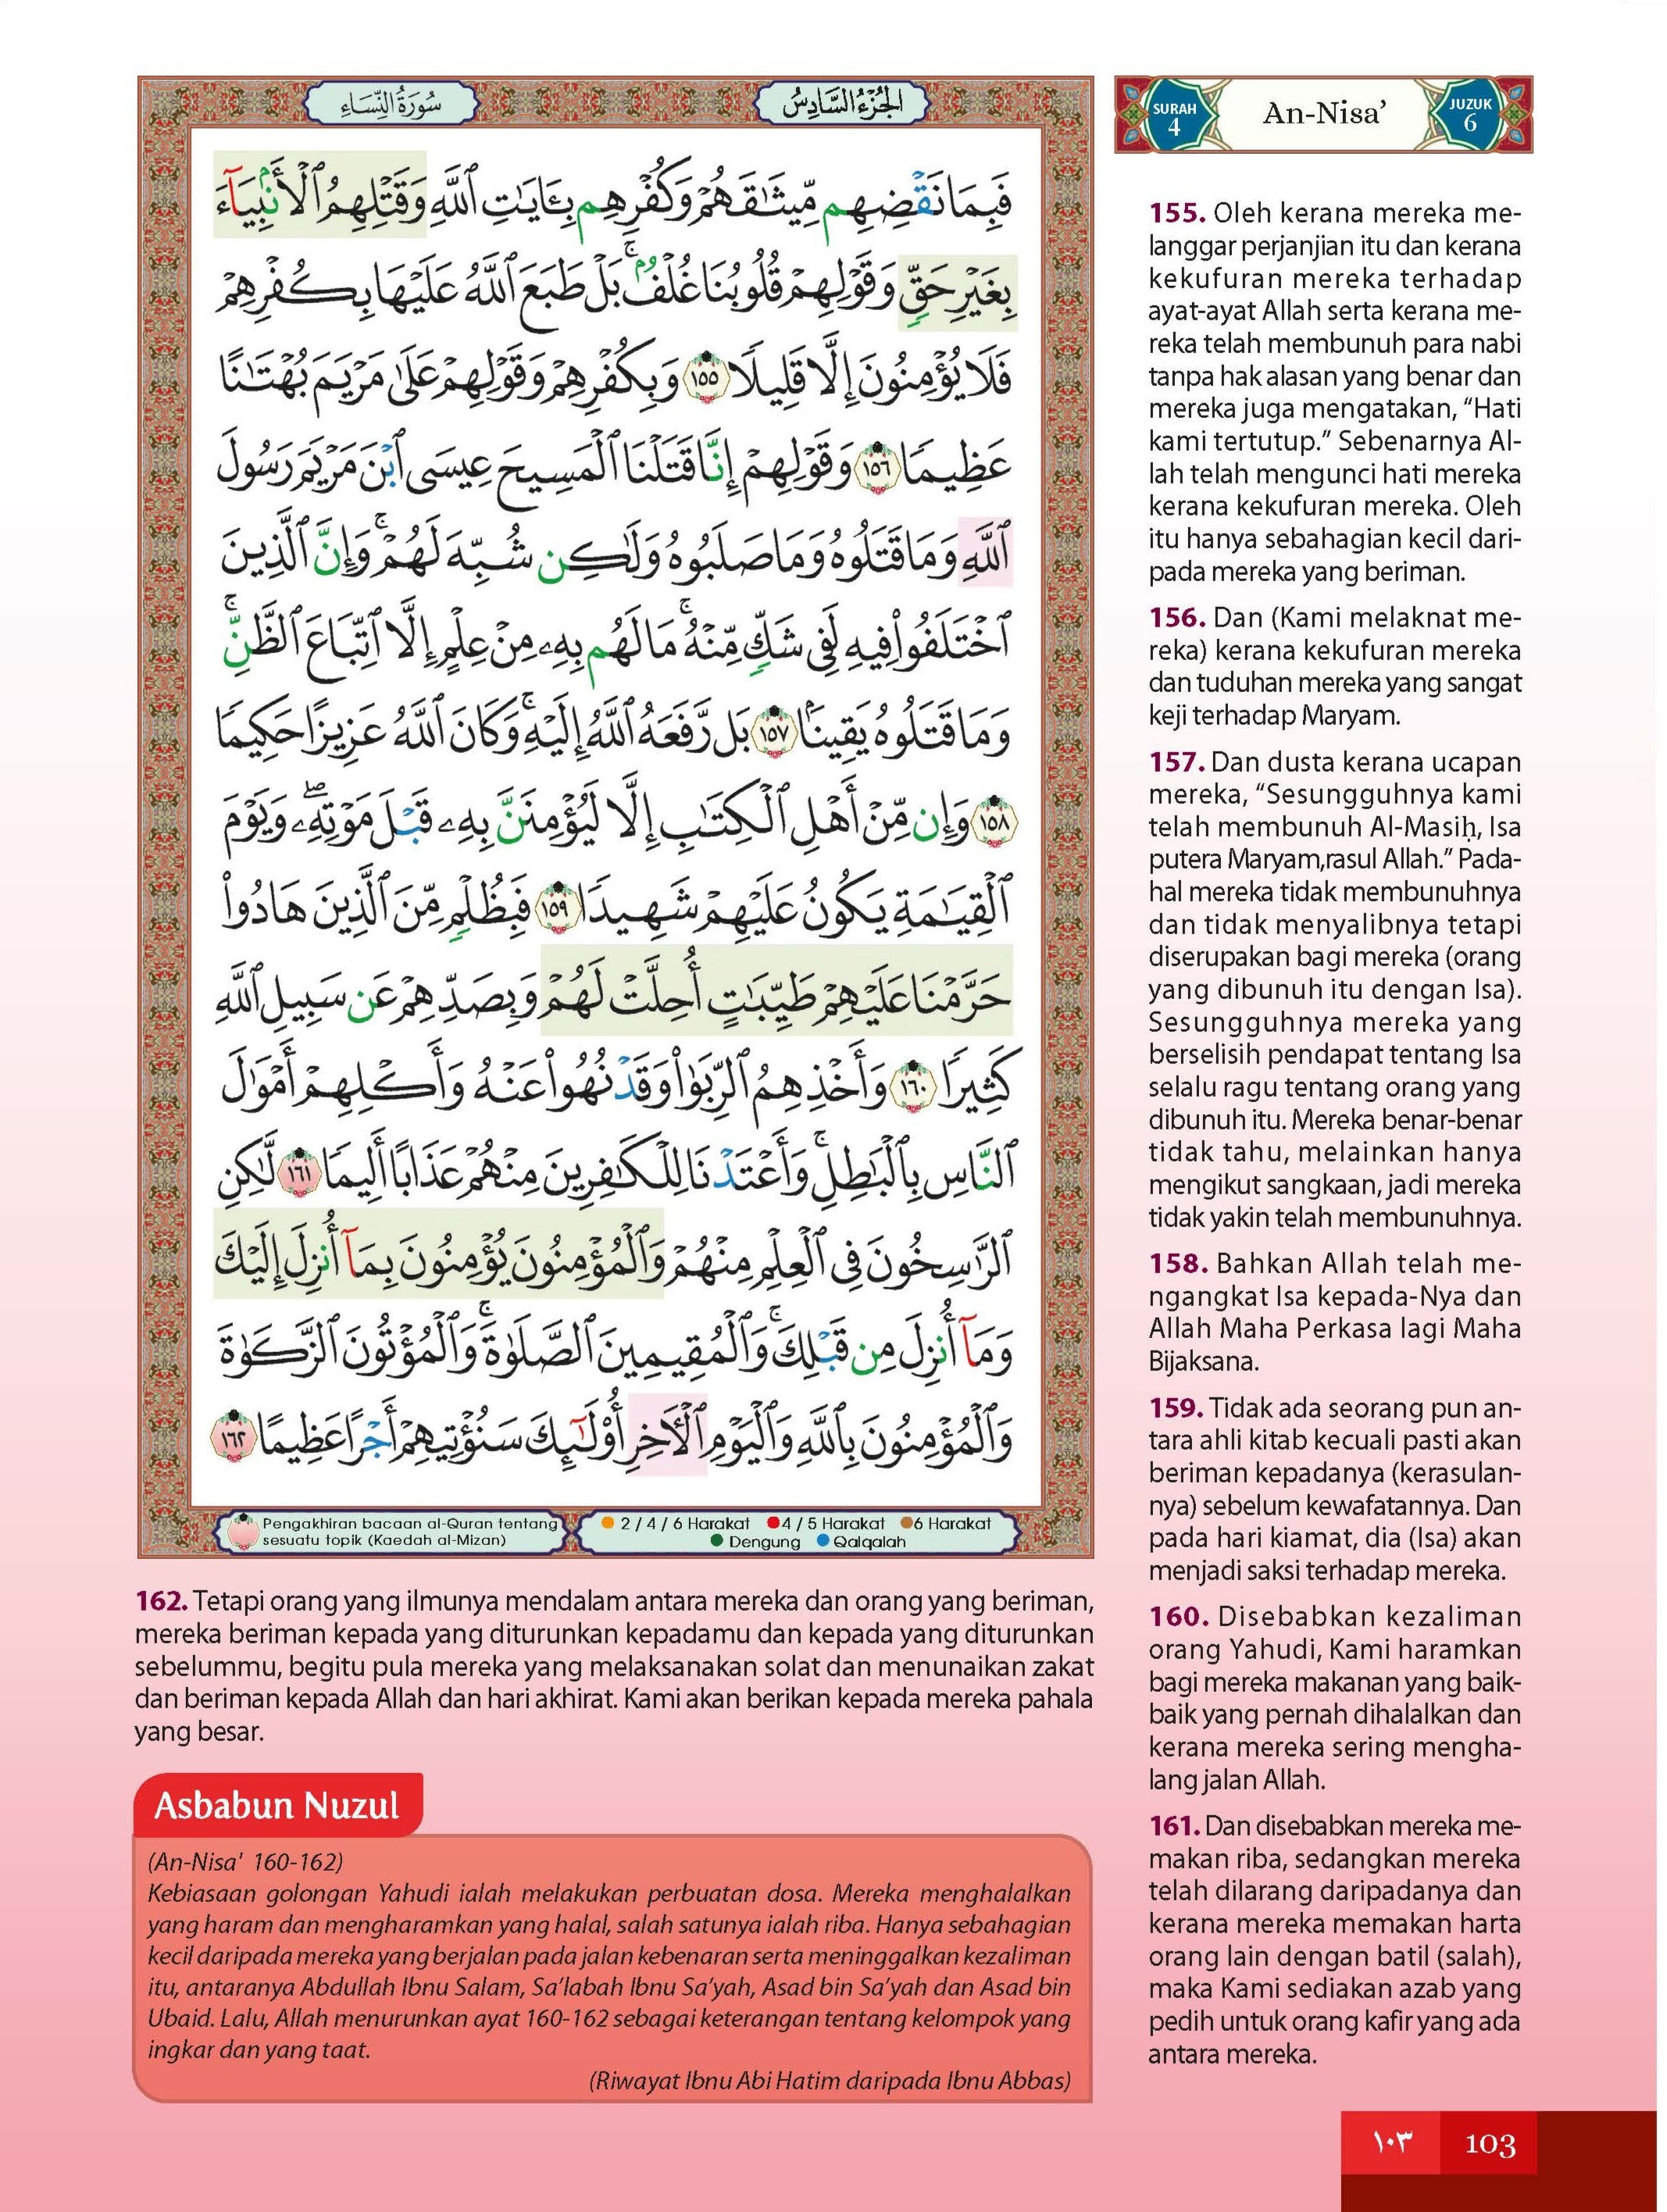 سُورَةُ النِّسَاءِ
الجُزْءُ السَّادِسُ
SURAH
4
An-Nisa’
JUZUK
6
فَبِمَا نَقْضِهِم مِّيثَٰقَهُمْ وَكُفْرِهِم بِـَٔايَٰتِ ٱللَّهِ وَقَتْلِهِمُ ٱلْأَنۢبِيَآءَ
بِغَيْرِ حَقٍّ وَقَوْلِهِمْ قُلُوبُنَا غُلْفٌۢ ۚ بَلْ طَبَعَ ٱللَّهُ عَلَيْهَا بِكُفْرِهِمْ
فَلَا يُؤْمِنُونَ إِلَّا قَلِيلًا ١٥٥ وَبِكُفْرِهِمْ وَقَوْلِهِمْ عَلَىٰ مَرْيَمَ بُهْتَٰنًا
عَظِيمًا ١٥٦ وَقَوْلِهِمْ إِنَّا قَتَلْنَا ٱلْمَسِيحَ عِيسَى ٱبْنَ مَرْيَمَ رَسُولَ
ٱللَّهِ وَمَا قَتَلُوهُ وَمَا صَلَبُوهُ وَلَٰكِن شُبِّهَ لَهُمْ ۚ وَإِنَّ ٱلَّذِينَ
ٱخْتَلَفُوا۟ فِيهِ لَفِى شَكٍّ مِّنْهُ ۚ مَا لَهُم بِهِۦ مِنْ عِلْمٍ إِلَّا ٱتِّبَاعَ ٱلظَّنِّ ۚ
وَمَا قَتَلُوهُ يَقِينًۢا ١٥٧ بَل رَّفَعَهُ ٱللَّهُ إِلَيْهِ ۚ وَكَانَ ٱللَّهُ عَزِيزًا حَكِيمًا
١٥٨ وَإِن مِّنْ أَهْلِ ٱلْكِتَٰبِ إِلَّا لَيُؤْمِنَنَّ بِهِۦ قَبْلَ مَوْتِهِۦ ۖ وَيَوْمَ
ٱلْقِيَٰمَةِ يَكُونُ عَلَيْهِمْ شَهِيدًا ١٥٩ فَبِظُلْمٍ مِّنَ ٱلَّذِينَ هَادُوا۟
حَرَّمْنَا عَلَيْهِمْ طَيِّبَٰتٍ أُحِلَّتْ لَهُمْ وَبِصَدِّهِمْ عَن سَبِيلِ ٱللَّهِ
كَثِيرًا ١٦٠ وَأَخْذِهِمُ ٱلرِّبَوٰا۟ وَقَدْ نُهُوا۟ عَنْهُ وَأَكْلِهِمْ أَمْوَٰلَ
ٱلنَّاسِ بِٱلْبَٰطِلِ ۚ وَأَعْتَدْنَا لِلْكَٰفِرِينَ مِنْهُمْ عَذَابًا أَلِيمًا ١٦١ لَّٰكِنِ
ٱلرَّٰسِخُونَ فِى ٱلْعِلْمِ مِنْهُمْ وَٱلْمُؤْمِنُونَ يُؤْمِنُونَ بِمَآ أُنزِلَ إِلَيْكَ
وَمَآ أُنزِلَ مِن قَبْلِكَ ۚ وَٱلْمُقِيمِينَ ٱلصَّلَوٰةَ ۚ وَٱلْمُؤْتُونَ ٱلزَّكَوٰةَ
وَٱلْمُؤْمِنُونَ بِٱللَّهِ وَٱلْيَوْمِ ٱلْءَاخِرِ أُو۟لَٰٓئِكَ سَنُؤْتِيهِمْ أَجْرًا عَظِيمًا ١٦٢
Pengakhiran bacaan al-Quran tentang
sesuatu topik (Kaedah al-Mizan)
2 / 4 / 6 Harakat 4 / 5 Harakat 6 Harakat
Dengung Qalqalah
155. Oleh kerana mereka me-
langgar perjanjian itu dan kerana
kekufuran mereka terhadap
ayat-ayat Allah serta kerana me-
reka telah membunuh para nabi
tanpa hak alasan yang benar dan
mereka juga mengatakan, “Hati
kami tertutup.” Sebenarnya Al-
lah telah mengunci hati mereka
kerana kekufuran mereka. Oleh
itu hanya sebahagian kecil dari-
pada mereka yang beriman.
156. Dan (Kami melaknat me-
reka) kerana kekufuran mereka
dan tuduhan mereka yang sangat
keji terhadap Maryam.
157. Dan dusta kerana ucapan
mereka, “Sesungguhnya kami
telah membunuh Al-Masiḥ, Isa
putera Maryam,rasul Allah.” Pada-
hal mereka tidak membunuhnya
dan tidak menyalibnya tetapi
diserupakan bagi mereka (orang
yang dibunuh itu dengan Isa).
Sesungguhnya mereka yang
berselisih pendapat tentang Isa
selalu ragu tentang orang yang
dibunuh itu. Mereka benar-benar
tidak tahu, melainkan hanya
mengikut sangkaan, jadi mereka
tidak yakin telah membunuhnya.
158. Bahkan Allah telah me-
ngangkat Isa kepada-Nya dan
Allah Maha Perkasa lagi Maha
Bijaksana.
159. Tidak ada seorang pun an-
tara ahli kitab kecuali pasti akan
beriman kepadanya (kerasulan-
nya) sebelum kewafatannya. Dan
pada hari kiamat, dia (Isa) akan
menjadi saksi terhadap mereka.
160. Disebabkan kezaliman
orang Yahudi, Kami haramkan
bagi mereka makanan yang baik-
baik yang pernah dihalalkan dan
kerana mereka sering mengha-
lang jalan Allah.
161. Dan disebabkan mereka me-
makan riba, sedangkan mereka
telah dilarang daripadanya dan
kerana mereka memakan harta
orang lain dengan batil (salah),
maka Kami sediakan azab yang
pedih untuk orang kafir yang ada
antara mereka.
162. Tetapi orang yang ilmunya mendalam antara mereka dan orang yang beriman,
mereka beriman kepada yang diturunkan kepadamu dan kepada yang diturunkan
sebelummu, begitu pula mereka yang melaksanakan solat dan menunaikan zakat
dan beriman kepada Allah dan hari akhirat. Kami akan berikan kepada mereka pahala
yang besar.
Asbabun Nuzul
(An-Nisa' 160-162)
Kebiasaan golongan Yahudi ialah melakukan perbuatan dosa. Mereka menghalalkan
yang haram dan mengharamkan yang halal, salah satunya ialah riba. Hanya sebahagian
kecil daripada mereka yang berjalan pada jalan kebenaran serta meninggalkan kezaliman
itu, antaranya Abdullah Ibnu Salam, Sa’labah Ibnu Sa’yah, Asad bin Sa’yah dan Asad bin
Ubaid. Lalu, Allah menurunkan ayat 160-162 sebagai keterangan tentang kelompok yang
ingkar dan yang taat.
(Riwayat Ibnu Abi Hatim daripada Ibnu Abbas)
١٠٣ 103